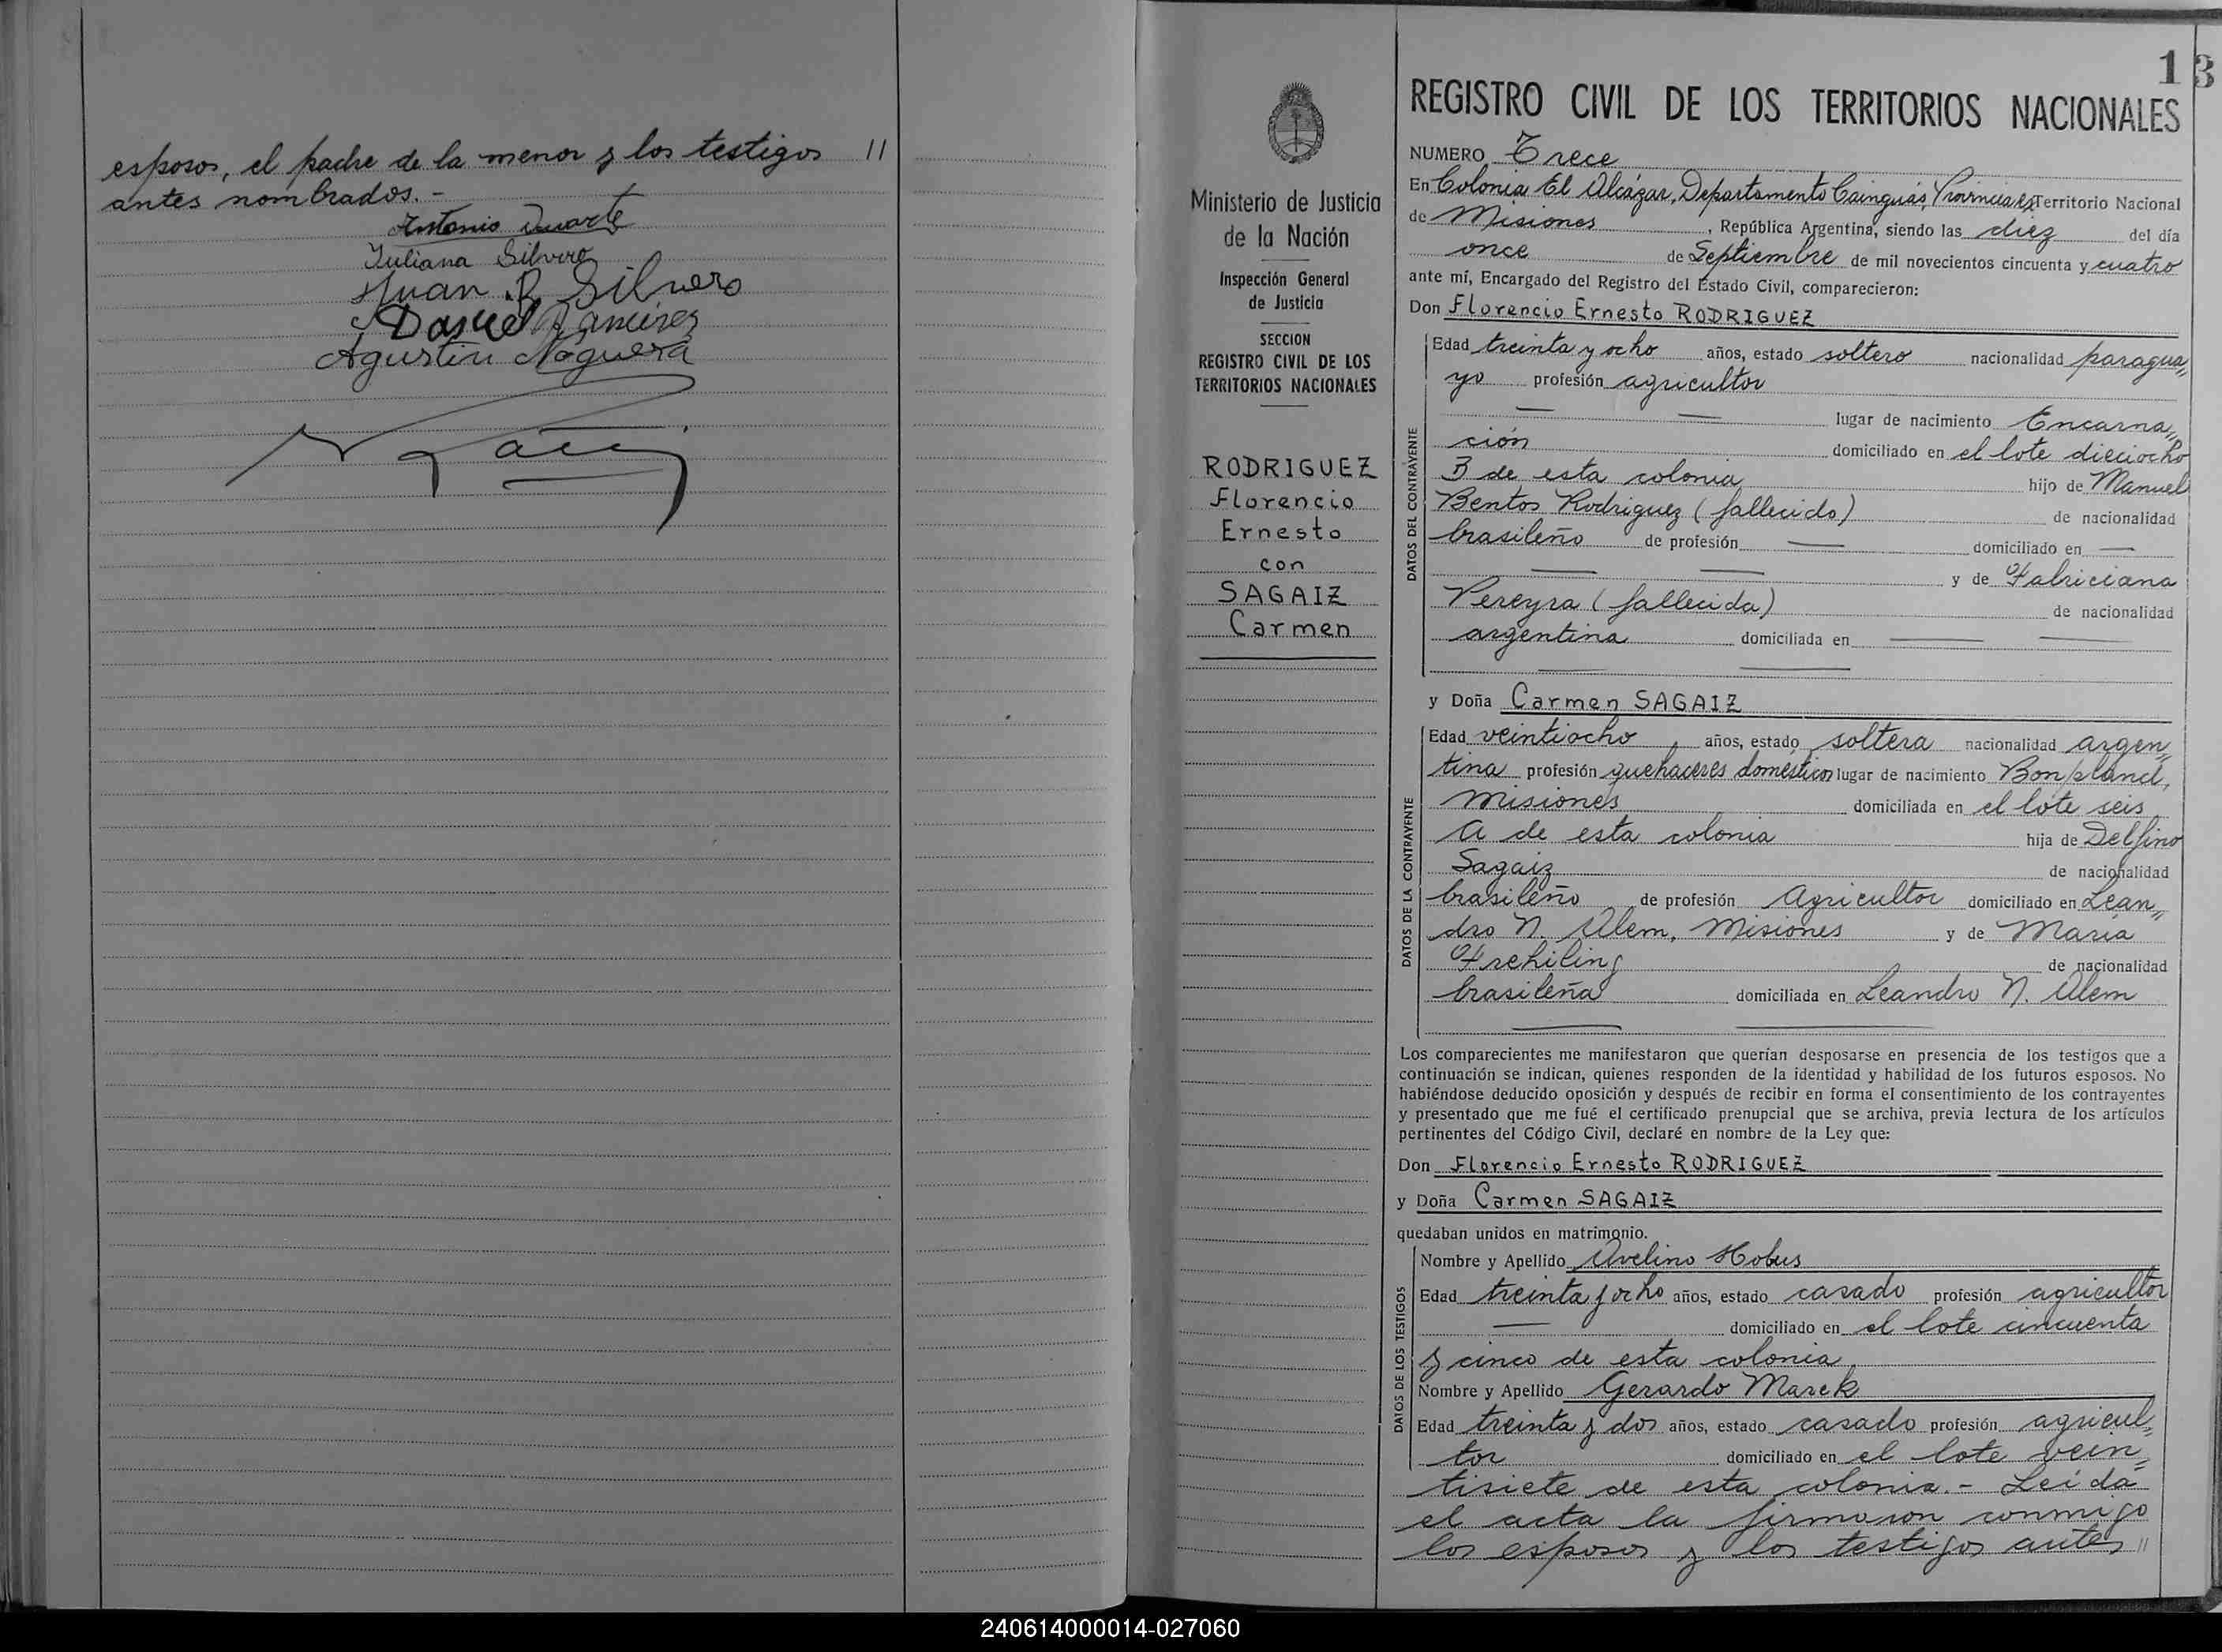 esposos, el padre de la menor y los testigos //
antes nombrados.-
Antonio Duarte
Juliana Silvero
Juan B Silvero
Daniel Ramirez
Agustin Noguera
13
Ministerio de Justicia
de la Nación
Inspección General
de Justicia
SECCION
REGISTRO CIVIL DE LOS
TERRITORIOS NACIONALES
RODRIGUEZ
Florencio
Ernesto
con
SAGAIZ
Carmen
REGISTRO CIVIL DE LOS TERRITORIOS NACIONALES
NUMERO Trece
En Colonia El Alcázar, Departamento Cainguás, Provincia es Territorio Nacional
de Misiones, República Argentina, siendo las diez del día
once de Septiembre de mil novecientos cincuenta y cuatro
ante mí, Encargado del Registro del Estado Civil, comparecieron:
Don Florencio Ernesto RODRIGUEZ
DATOS DEL CONTRAYENTE
Edad treinta y ocho años, estado soltero nacionalidad paragua,,
yo profesión agricultor
lugar de nacimiento Encarna,,
ción domiciliado en el lote dieciocho
B de esta colonia hijo de Manuel
Bentos Rodriguez (fallecido) de nacionalidad
brasileño de profesión — domiciliado en —
— — y de Fabriciana
Pereyra (fallecida) de nacionalidad
argentina domiciliada en — —
y Doña Carmen SAGAIZ
DATOS DE LA CONTRAYENTE
Edad veintiocho años, estado soltera nacionalidad argen,,
tina profesión quehaceres domésticos lugar de nacimiento Bonpland,
Misiones domiciliada en el lote seis
A de esta colonia hija de Delfino
Sagaiz de nacionalidad
brasileño de profesión Agricultor domiciliado en Lean,,
dro N. Alem, Misiones y de María
Frehiling de nacionalidad
brasileña domiciliada en Leandro N. Alem
Los comparecientes me manifestaron que querían desposarse en presencia de los testigos que a
continuación se indican, quienes responden de la identidad y habilidad de los futuros esposos. No
habiéndose deducido oposición y después de recibir en forma el consentimiento de los contrayentes
y presentado que me fué el certificado prenupcial que se archiva, previa lectura de los artículos
pertinentes del Código Civil, declaré en nombre de la Ley que:
Don Florencio Ernesto RODRIGUEZ
y Doña Carmen SAGAIZ
quedaban unidos en matrimonio.
DATOS DE LOS TESTIGOS
Nombre y Apellido Avelino Hobus
Edad treinta y ocho años, estado casado profesión agricultor
— domiciliado en el lote cincuenta
y cinco de esta colonia
Nombre y Apellido Gerardo Marek
Edad treinta y dos años, estado casado profesión agricul,,
tor domiciliado en el lote vein,,
tisiete de esta colonia.- Leída
el acta la firmaron conmigo
los esposos y los testigos antes //
240614000014-027060